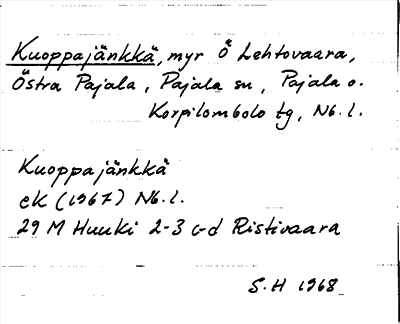 Kuoppajänkkä, myr Ö Lehtovaara,
Östra Pajala, Pajala sn, Pajala o.
Korpilombolo tg, Nb. l.
Kuoppajänkkä
ek (1967) Nb. l.
29 M Huuki 2-3 c-d Ristivaara
S.H 1968